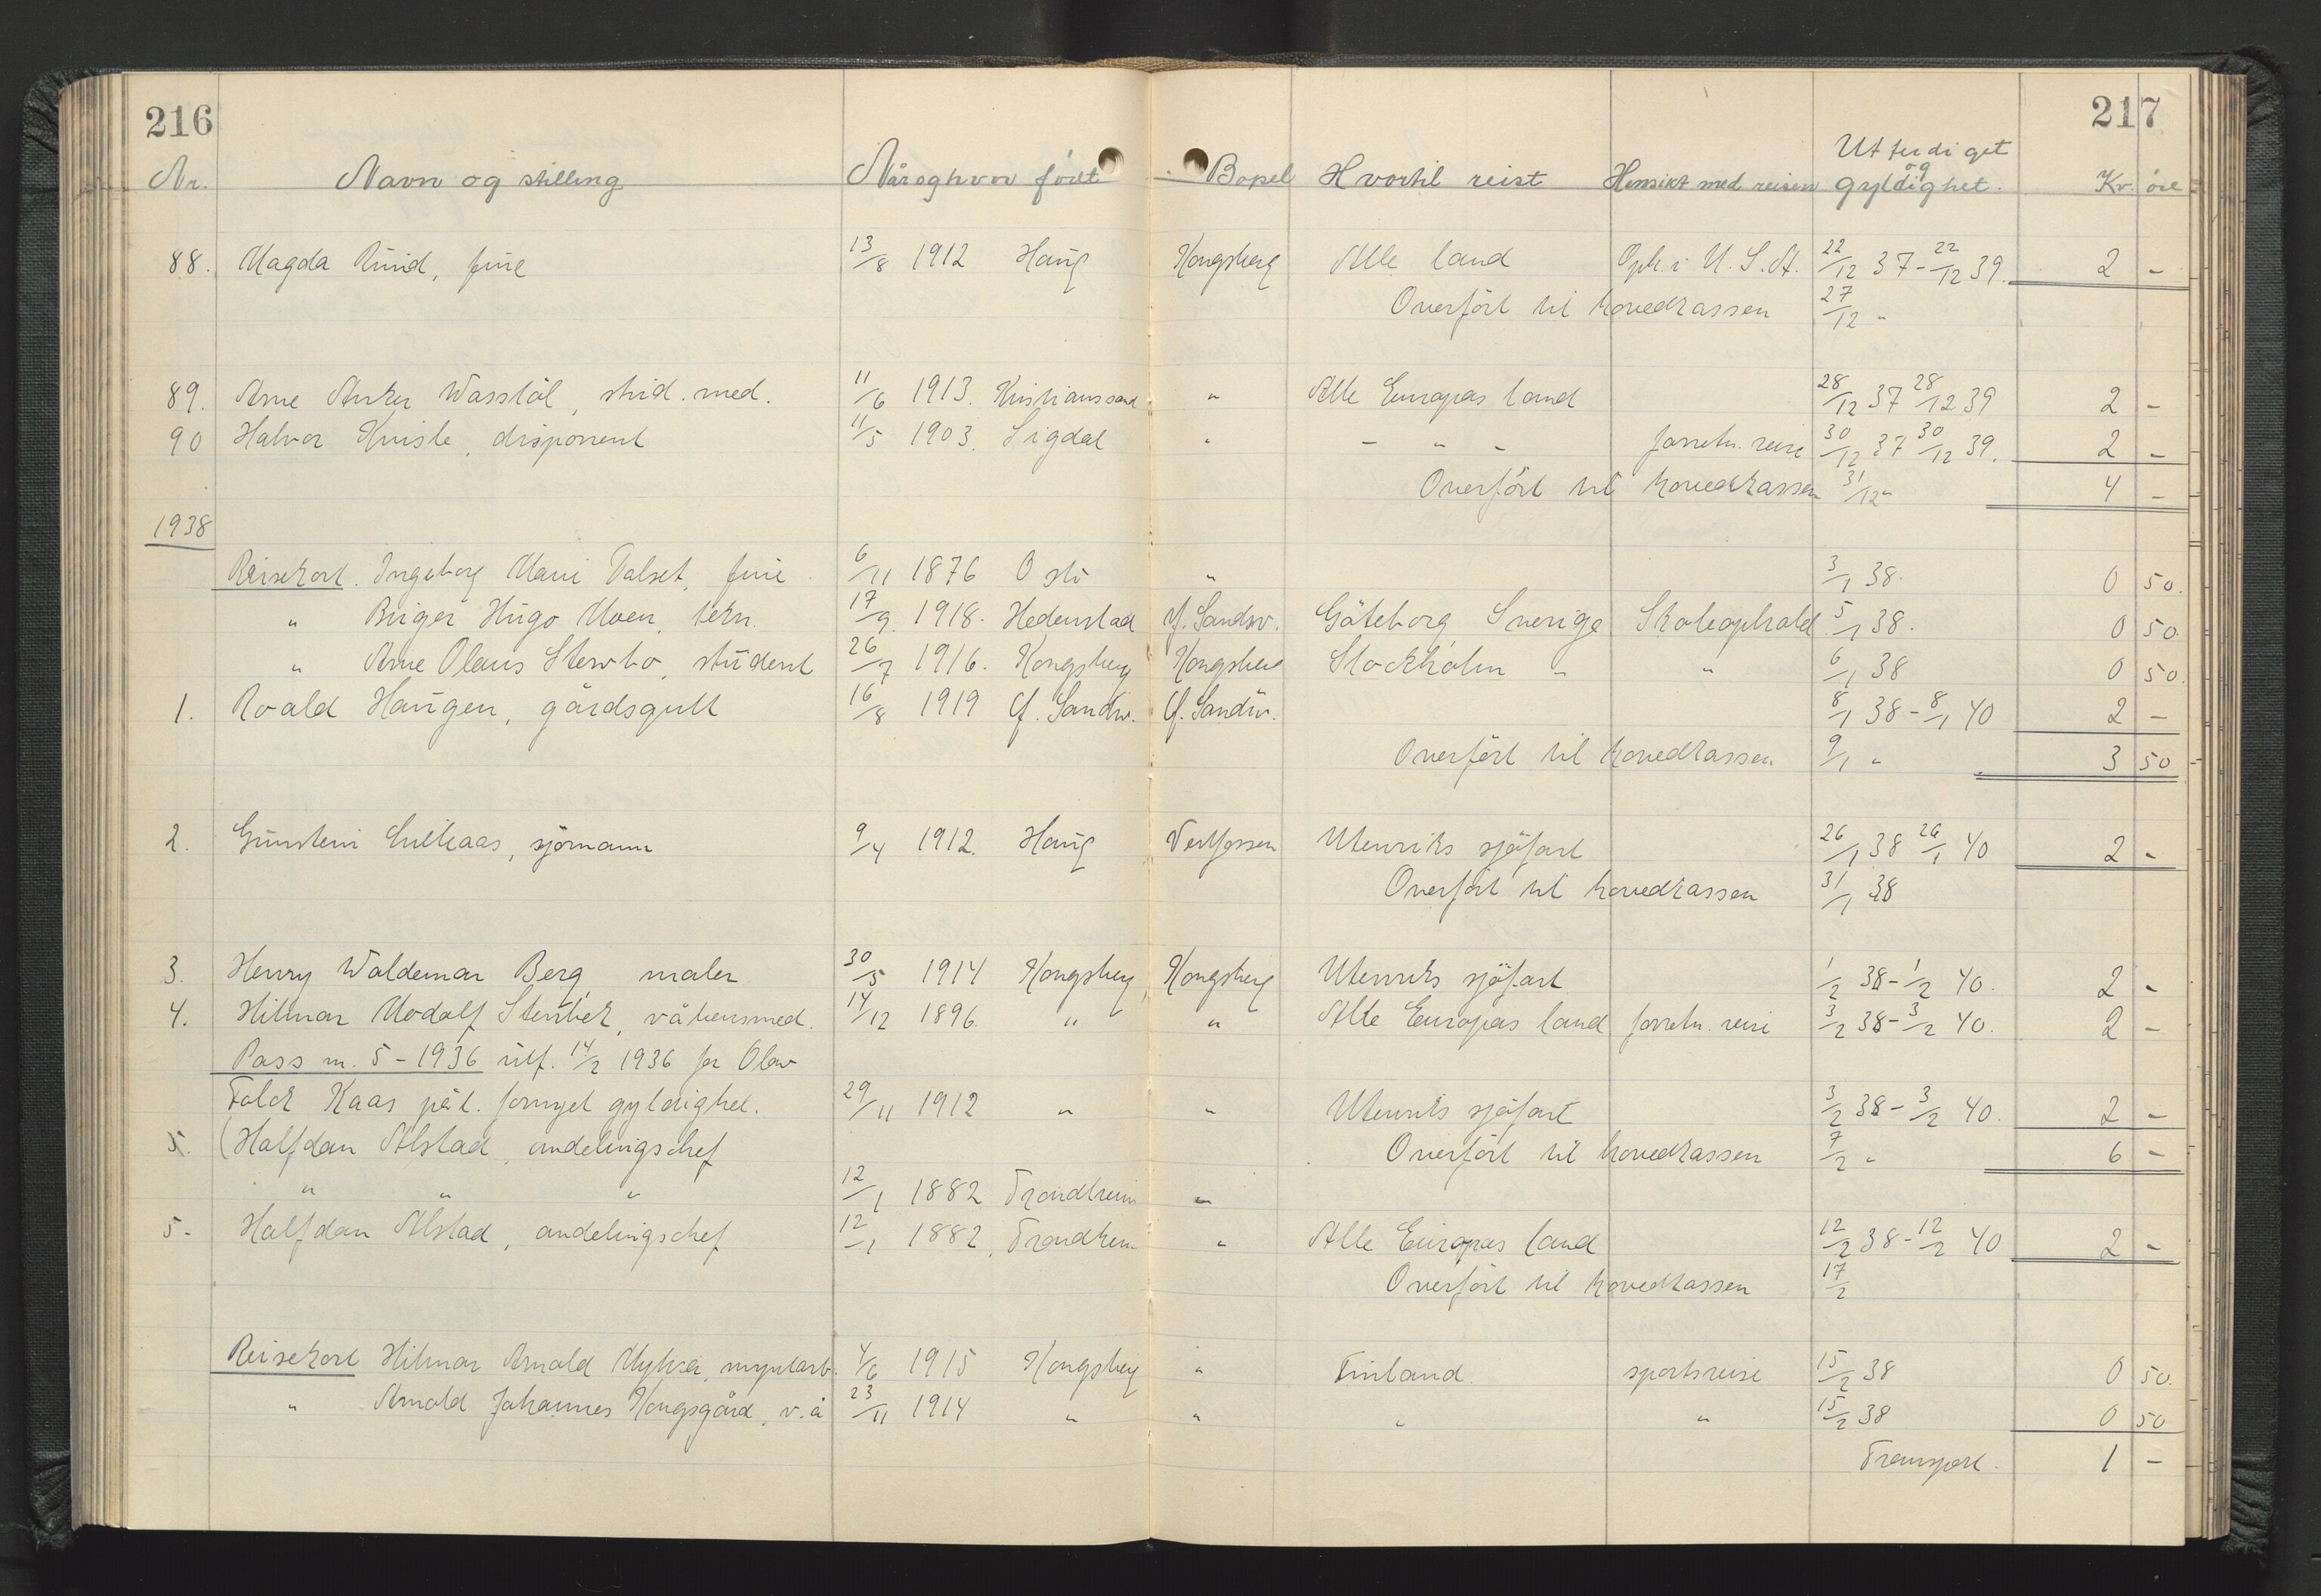 216
217
Nr. Navn og stilling Når og hvor født Bopel Hvortil reist Hensikt med reisen Utferdiget og gyldighet. Kr. öre
88. Magda Ruud, frue 13/8 1912 Haug Kongsberg Alle land Oph. i U.S.A. 22/12 37 - 22/12 39. 2 -
Overfört til hovedkassen 27/12 "
89. Arne Anker Wasstöl, stud. med. 11/6 1913. Kristianssand " Alle Europas land 28/12 37 28/12 39 2 -
90 Halvor Kvisle, disponent 11/5 1903. Sigdal " - " - forretn. reise 30/12 37 30/12 39. 2 -
Overfört til hovedkassen 31/12 " 4 -
1938
Reisekort. Ingeborg Marie Talset, frue. 6/11 1876 Oslo " 3/1 38. 0 50.
" Birger Hugo Moen, tekn. 17/9 1918. Hedenstad Y. Sandsv. Göteborg, Sverige Skoleophold 5/1 38. 0 50.
" Arne Olaus Stewbo, student 26/7 1916. Kongsberg Kongsberg Stockholm " " 6/1 38 0 50.
1. Roald Haugen, gårdsgutt 16/8 1919 Y. Sandsv. Y. Sandsv. 8/1 38 - 8/1 40 2 -
Overfört til hovedkassen 9/1 " 3 50
2. Gunstein sjömann 9/4 1912. Haug Vestfossen Utenriks sjöfart 26/1 38 26/1 40 2 -
Overfört til hovedkassen 31/1 38
3. Henry Waldemar Berg, maler 30/5 1914 Kongsberg Kongsberg Utenriks sjöfart 1/2 38 - 1/2 40. 2 -
4. Hilmar Modolf Stenbek, våbensmed. 14/12 1896. " " Alle Europas land forretn. reise 3/2 38 - 3/2 40. 2 -
Pass nr. 5 - 1936 utf. 14/2 1936 for Olav
Falck Kaas påt. fornyet gyldighet. 29/11 1912 " " Utenriks sjöfart 3/2 38 - 3/2 40. 2 -
5. (Halfdan Alstad, avdelingschef Overfört til hovedkassen 7/2 " 6 -
" " " 12/1 1882 Trondheim "
5. Halfdan Alstad, avdelingschef 12/1 1882, Trondheim " Alle Europas land 12/2 38 - 12/2 40 2 -
Overfört til hovedkassen 17/2
Reisekort Hilmar Arnold Myhra, myntarb. 4/6 1915 Kongsberg " Finland. sportsreise 15/2 38 0 50.
" Arnold Johannes Kongsgård, v.a 23/11 1914 " " " " 15/2 38 0 50
Transport. 1 -